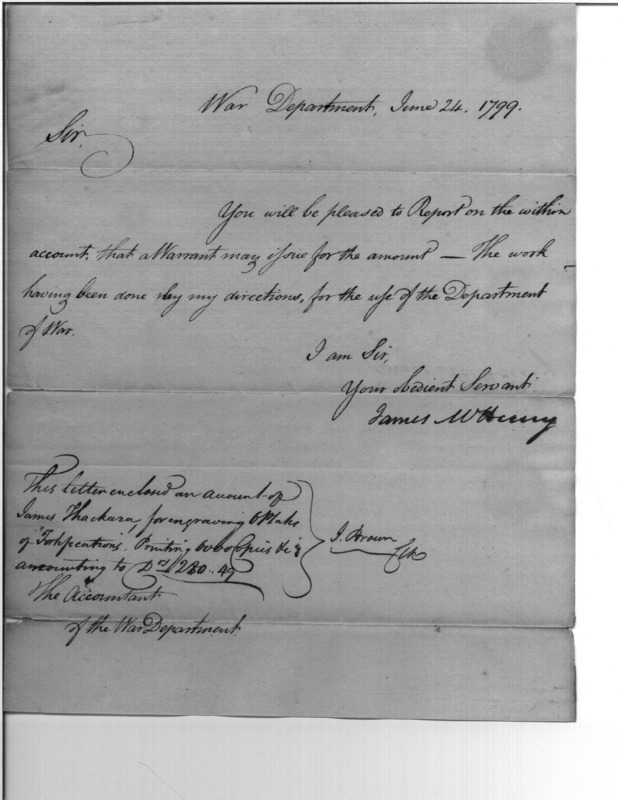 War Department, June 24. 1799.
Sir,
You will be pleased to Report on the within
account, that a Warrant may issue for the amount — The work
having been done by my directions, for the use of the Department
of War.
I am Sir,
Your obedient Servant
James McHenry
This letter enclosed an account of
James Thackara, for engraving 6 Plates
of "Fortifications". Printing Copies &c
amounting to Drs 280..49
J. Brown
Clk
The Accountant
of the War Department